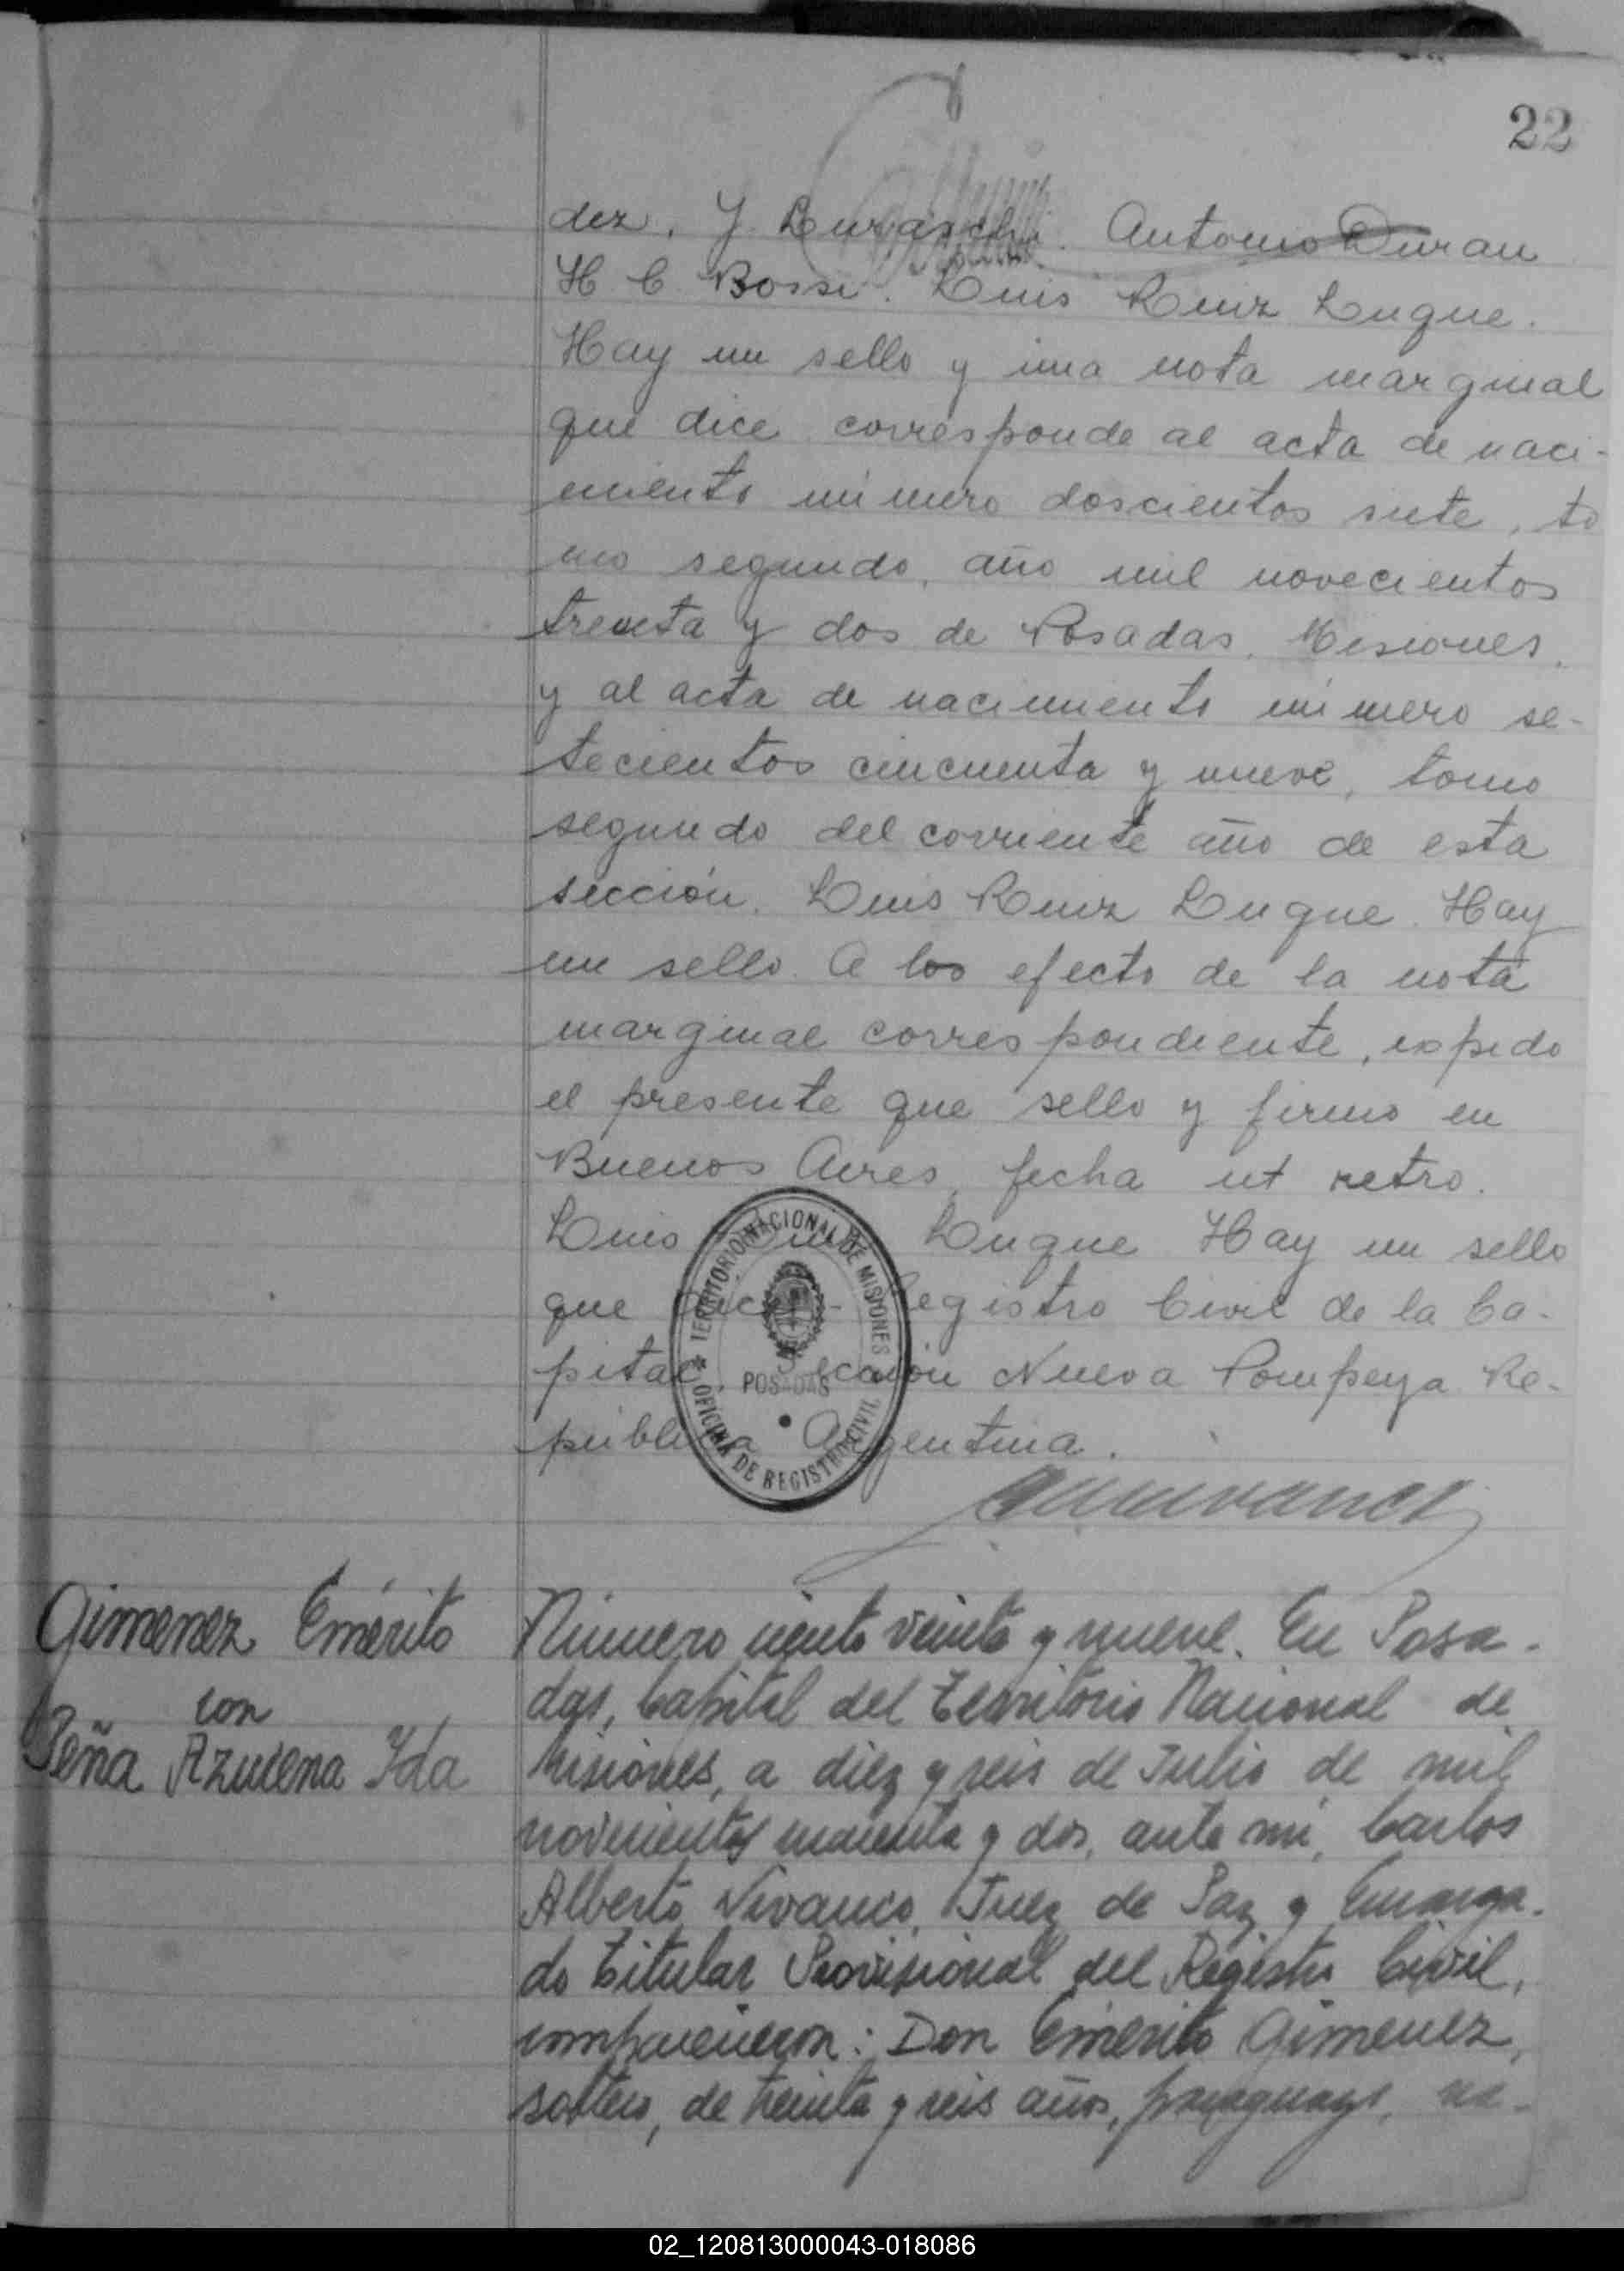 22
dez. J. Luraschi. Antonio Duran
H C Bossi. Luis Ruiz Luque.
Hay un sello y una nota marginal
que dice corresponde al acta de naci-
miento número doscientos siete, to
mo segundo, año mil novecientos
treinta y dos de Posadas. Misiones.
y al acta de nacimiento número se-
tecientos cincuenta y nueve, tomo
segundo del corriente año de esta
sección. Luis Ruiz Luque. Hay
un sello. A los efecto de la nota
marginal correspondiente, expido
el presente que sello y firmo en
Buenos Aires, fecha ut retro.
Luis Ruiz Luque Hay un sello
que dice:- Registro Civil de la Ca-
pital. Sección Nueva Pompeya. Re-
pública Argentina.
TERRITORIO NACIONAL DE MISIONES
POSADAS
OFICINA DE REGISTRO CIVIL
Gimenez Emérito
con
Peña Azucena Ida
Número ciento veinte y nueve. En Posa-
das, Capital del Territorio Nacional de
Misiones, a diez y seis de Julio de mil
novecientos cuarenta y dos, ante mí, Carlos
Alberto Vivanco, Juez de Paz y Encarga-
do Titular Provisional del Registro Civil,
comparecieron: Don Emérito Gimenez,
soltero, de treinta y seis años, paraguayo, na-
02_120813000043-018086